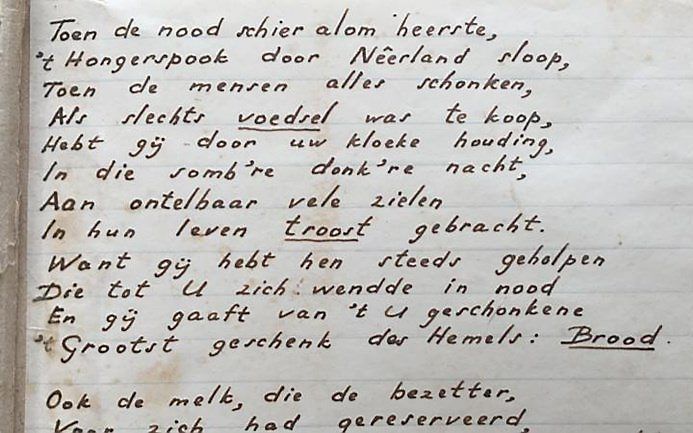 Toen de nood schier alom heerste,
't Hongerspook door Nêerland sloop,
Toen de mensen alles schonken,
Als slechts voedsel was te koop,
Hebt gij door uw kloeke houding,
In die somb're donk're nacht,
Aan ontelbaar vele zielen
In hun leven troost gebracht.
Want gij hebt hen steeds geholpen
Die tot U zich wendde in nood
En gij gaaft van 't U geschonkene
't Grootst geschenk des Hemels: Brood.
Ook de melk, die de bezetter,
Voor zich had gereserveerd,